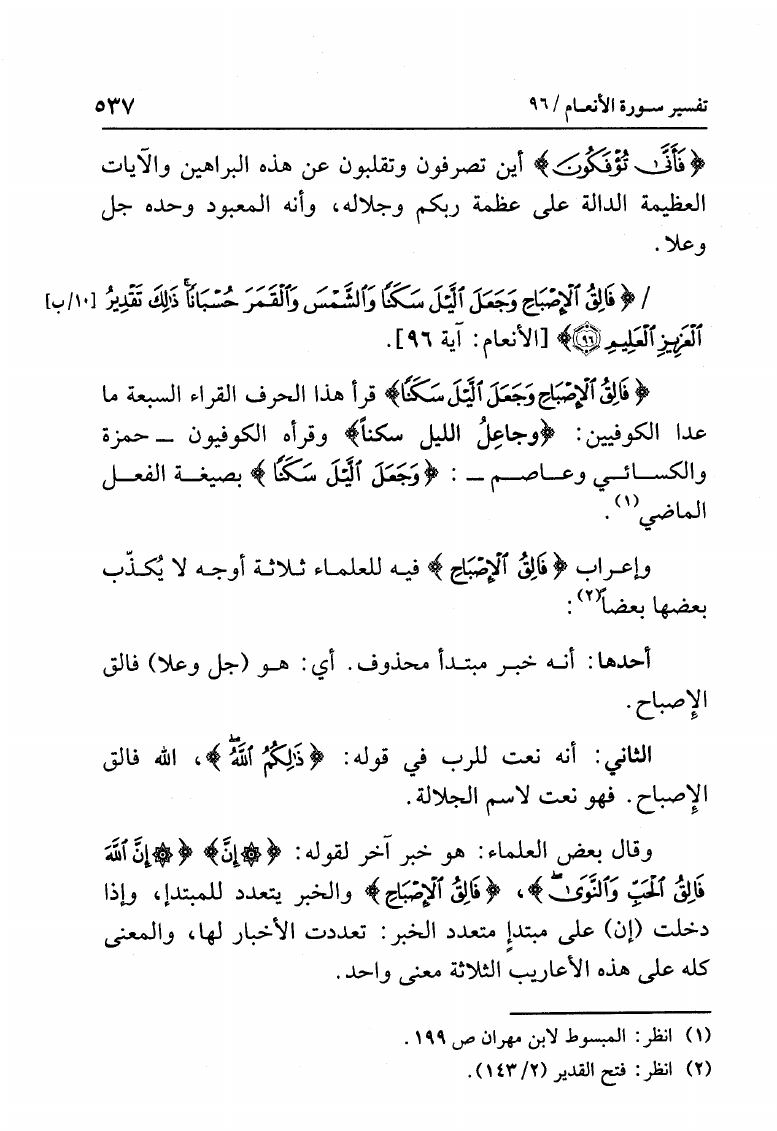 تفسير سورة الأنعام / ٩٦
٥٣٧
﴿ فَأَنَّىٰ تُؤْفَكُونَ ﴾ أين تصرفون وتقلبون عن هذه البراهين والآيات
العظيمة الدالة على عظمة ربكم وجلاله، وأنه المعبود وحده جل
وعلا.
/ ﴿ فَالِقُ ٱلْإِصْبَاحِ وَجَعَلَ ٱلَّيْلَ سَكَنًا وَٱلشَّمْسَ وَٱلْقَمَرَ حُسْبَانًا ۚ ذَٰلِكَ تَقْدِيرُ [١٠/ب]
ٱلْعَزِيزِ ٱلْعَلِيمِ ٩٦ ﴾ [الأنعام: آية ٩٦].
﴿ فَالِقُ ٱلْإِصْبَاحِ وَجَعَلَ ٱلَّيْلَ سَكَنًا ﴾ قرأ هذا الحرف القراء السبعة ما
عدا الكوفيين: ﴿وجاعِلُ الليل سكناً﴾ وقرأه الكوفيون ــ حمزة
والكسائي وعاصم ــ : ﴿ وَجَعَلَ ٱلَّيْلَ سَكَنًا ﴾ بصيغة الفعل
الماضي(١).
وإعراب ﴿ فَالِقُ ٱلْإِصْبَاحِ ﴾ فيه للعلماء ثلاثة أوجه لا يُكذّب
بعضها بعضاً(٢):
أحدها: أنه خبر مبتدأ محذوف. أي: هو (جل وعلا) فالق
الإصباح.
الثاني: أنه نعت للرب في قوله: ﴿ ذَٰلِكُمُ ٱللَّهُ ۖ ﴾، الله فالق
الإصباح. فهو نعت لاسم الجلالة.
وقال بعض العلماء: هو خبر آخر لقوله: ﴿ ۞ إِنَّ ﴾ ﴿ ۞ إِنَّ ٱللَّهَ
فَالِقُ ٱلْحَبِّ وَٱلنَّوَىٰ ۖ ﴾، ﴿ فَالِقُ ٱلْإِصْبَاحِ ﴾ والخبر يتعدد للمبتدإ، وإذا
دخلت (إن) على مبتدإٍ متعدد الخبر: تعددت الأخبار لها، والمعنى
كله على هذه الأعاريب الثلاثة معنى واحد.
(١) انظر: المبسوط لابن مهران ص ١٩٩.
(٢) انظر: فتح القدير (٢/١٤٣).